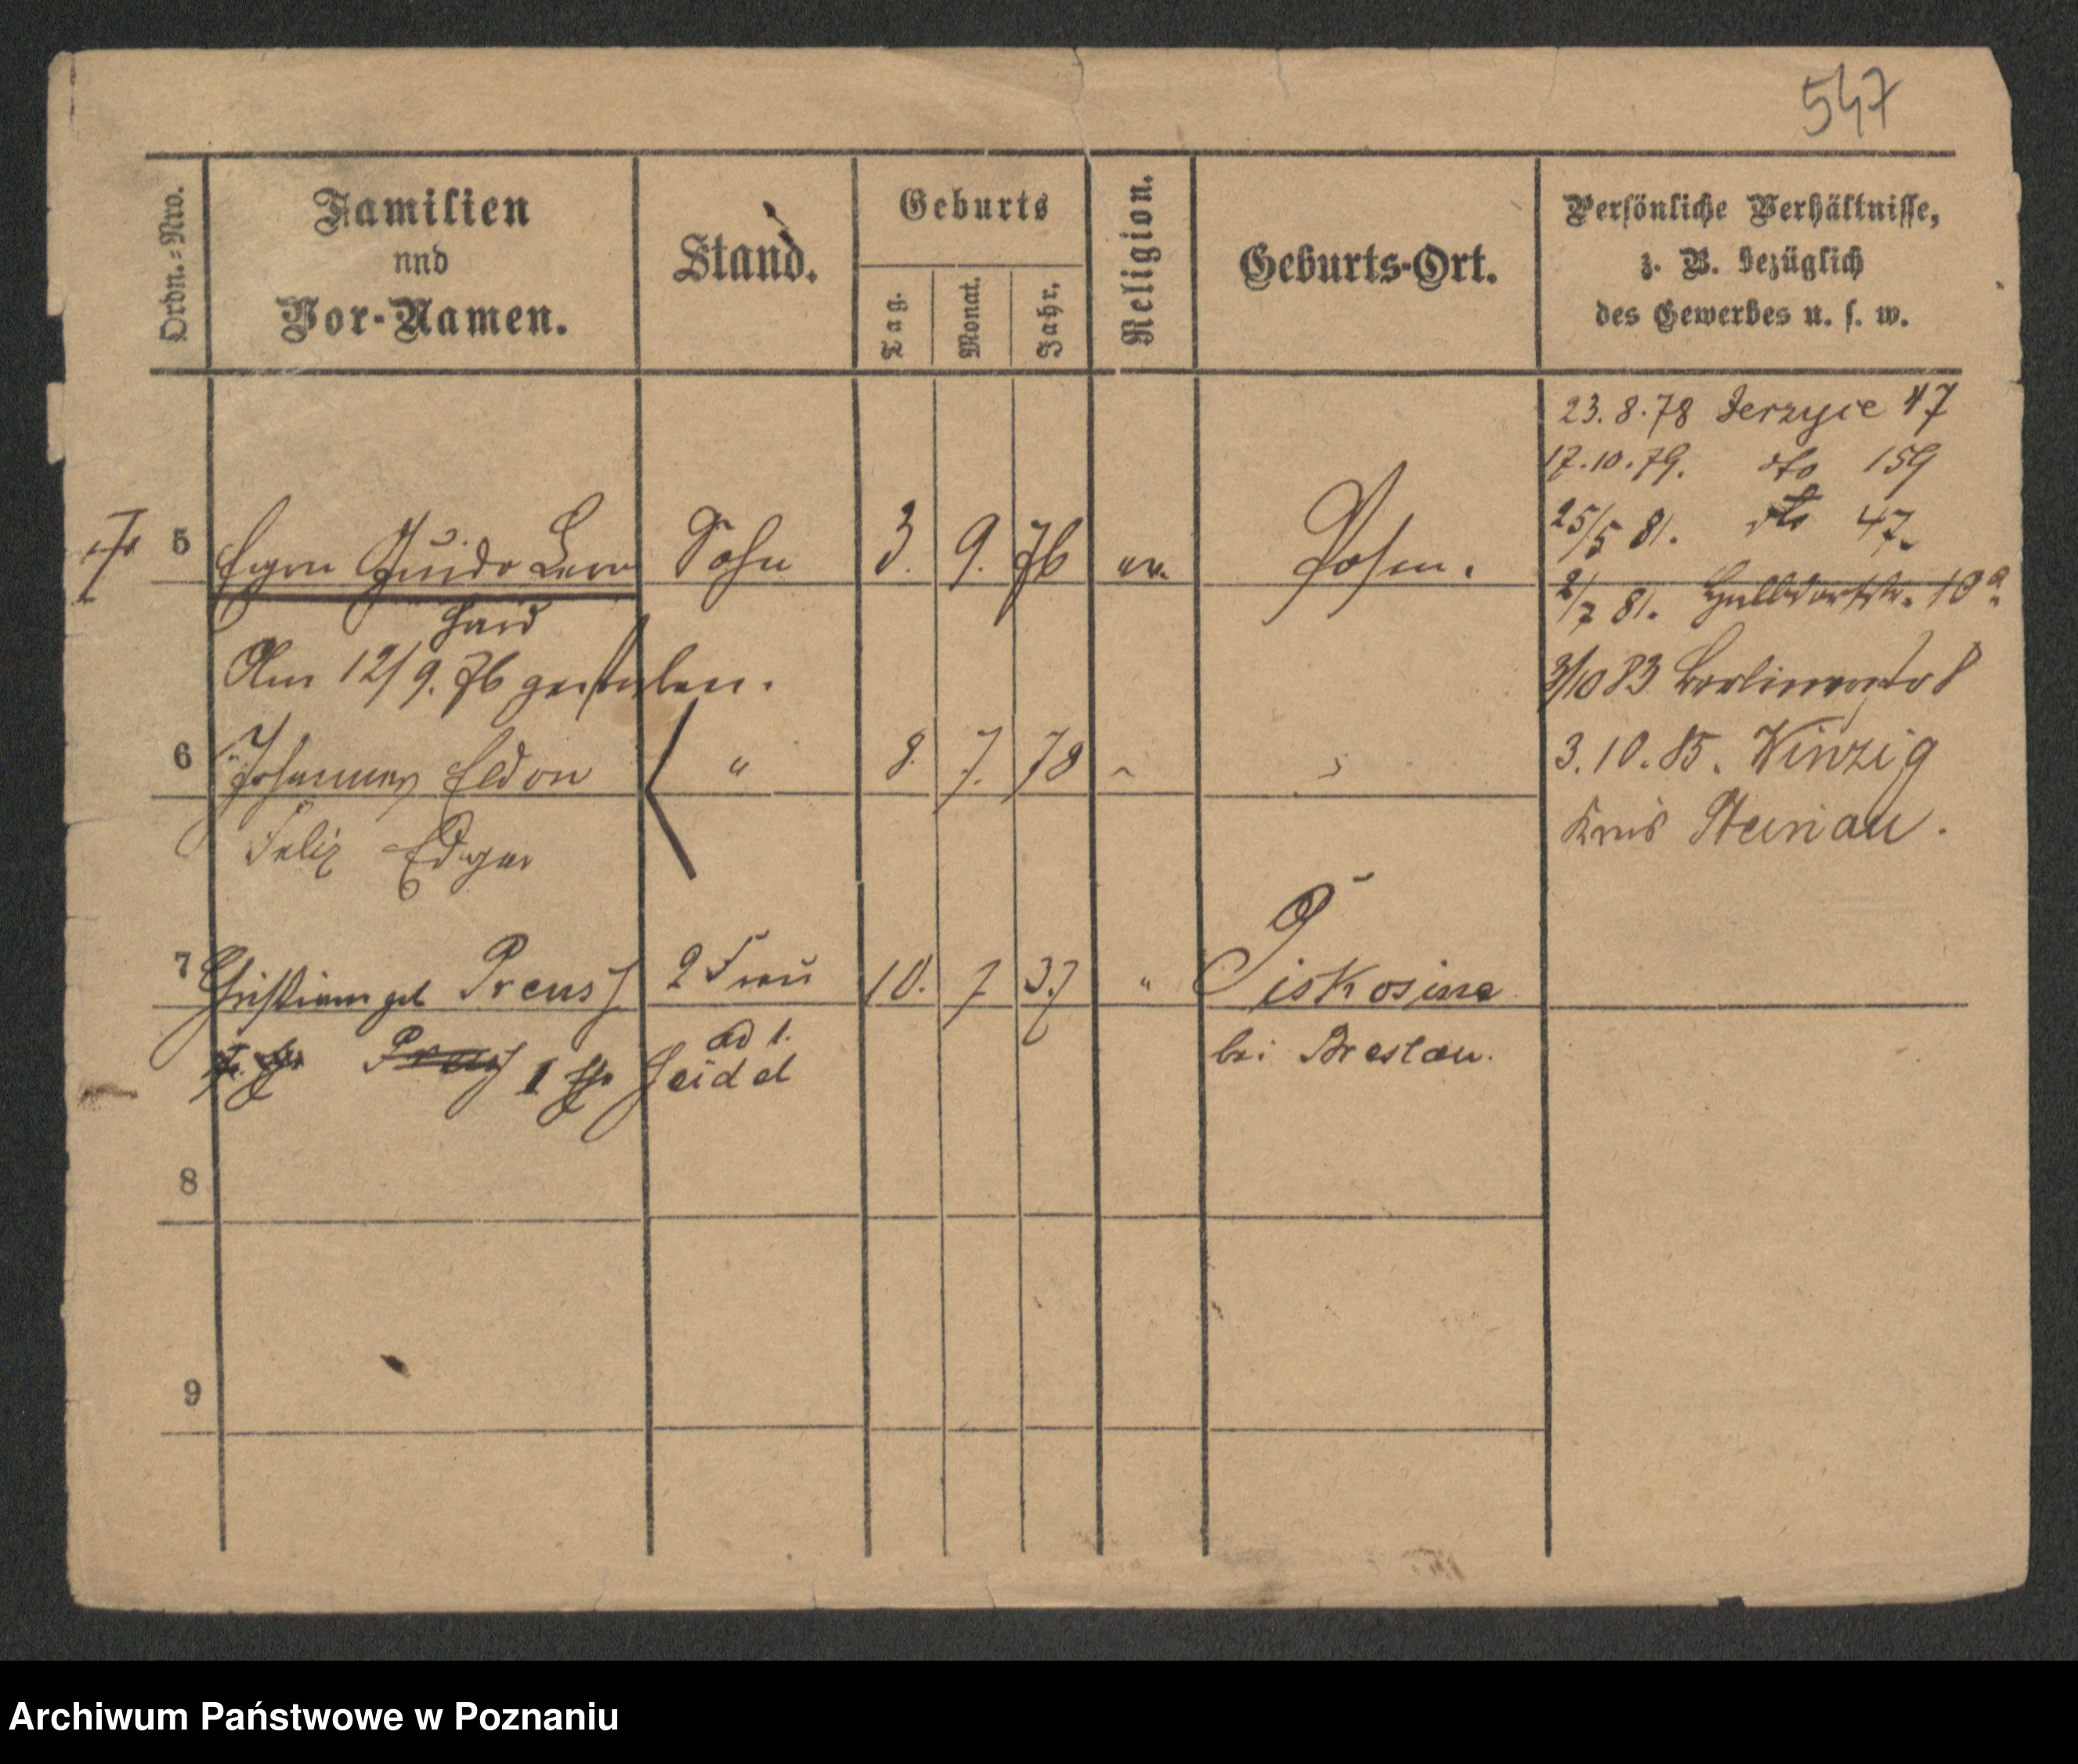 547
Ordn.-Nro.
Familien
und
Vor-Namen.
Stand.
Geburts
Tag.
Monat.
Jahr.
Religion.
Geburts-Ort.
Persönliche Verhältnisse,
z. B. bezüglich
des Gewerbes u. s. w.
23. 8. 78 Jerzyce 47
17. 10. 79. dto 159
25/5 81. dto 47.
5 Egon Guido Leon Sohn 3. 9. 76 ev. Posen.
hard
2/7 81. Halbdorfstr. 10a.
Am 12/9. 76 gestorben.
3/10 83 Berlinerstr 8
6 Johannes Eldon " 8. 7. 78
3. 10. 85. Winzig
Kreis Steinau.
Felix Edgar
7 Christiane geb Preuss 2 Frau 10. 7 37 " Piskosine
Preuss 1 Ehe Seidel
ad 1.
bei Breslau.
8
9
Archiwum Państwowe w Poznaniu